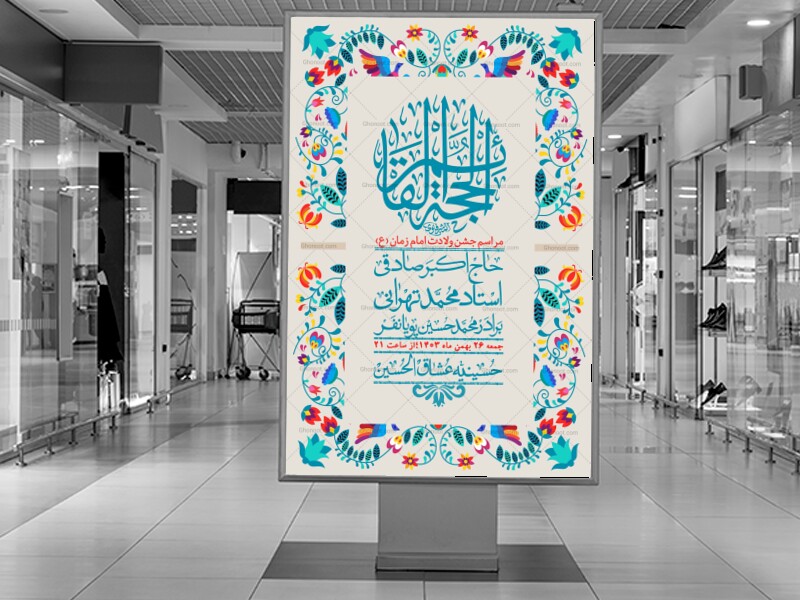 الحجة القائم
مراسم جشن ولادت امام زمان (ع)
حاج اکبر صادقی
استاد محمد تهرانی
برادر محمد حسین پویانفر
جمعه ۲۶ بهمن ماه ۱۴۰۳؛از ساعت ۲۱
حسینیه عشاق الحسین
Ghonoot.com